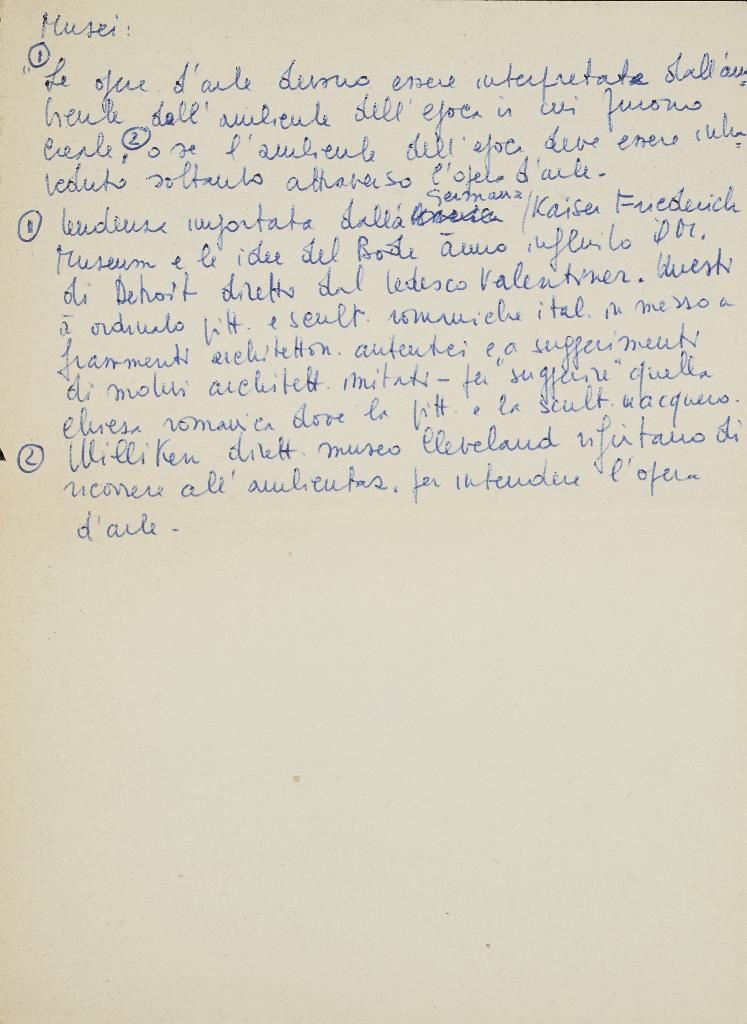 Musei:
① "Le opere d'arte devono essere interpretate dall'am
biente dell'ambiente dell'epoca in cui furono
create, ② o se l'ambiente dell'epoca deve essere intra
veduto soltanto attraverso l'opera d'arte -
① tendenza importata dalla Germania / Kaiser Friederich
Museum e le idee del Bode ānno influito il M.
di Detroit diretto dal tedesco Valentiner. Questi
ā ordinato pitt. e scult. romaniche ital. in mezzo a
frammenti architetton. autentici e a suggerimenti
di motivi architett. imitati - per "suggerire" quella
chiesa romanica dove la pitt. e la scult. nacquero.
② Milliken dirett. museo Cleveland rifiutano di
ricorrere all'ambientaz. per intendere l'opera
d'arte -